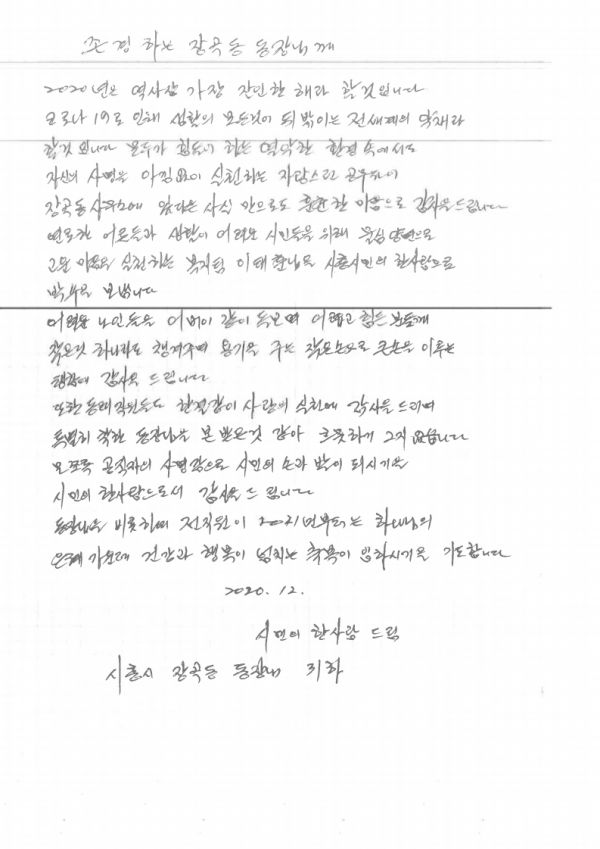 존경하는 장곡동 동장님께
2020년은 역사상 가장 잔인한 해라 할것입니다
코로나 19로 인해 생활의 모든것이 뒤밖이는 전세계의 악재라
할것 입니다 모두가 힘들어 하는 열악한 환경 속에서도
자신의 사명을 아낌없이 실천하는 자랑스런 공무원이
장곡동사무소에 있다는 사실 만으로도 훈훈한 마음으로 감사를 드립니다
연로한 어른들과 생활이 어려운 시민들을 위해 물심양면으로
고운 마음을 실천하는 복지팀 이태훈님을 시흥시민의 한사람으로
박수를 보냅니다
어려운 노인들을 어버이 같이 돌보며 어렵고 힘든 분들께
작은것 하나라도 챙겨주며 용기를 주는 작은손으로 큰손을 이루는
감사를 드립니다
또한 동료직원들도 한결같이 사랑의 실천에 감사를 드리며
특별히 착한 동장님을 본 받은것 같아 흐뭇하게 그지 없습니다
모쪼록 공직자의 사명감으로 시민의 손과 발이 되시기를
시민의 한사람으로서 감사를 드립니다
동장님을 비롯하여 전직원이 2021년부터는 하나님의
은혜 가운데 건강과 행복이 넘치는 축복이 임하시기를 기도합니다
2020. 12.
시민의 한사람 드림
시흥시 장곡동 동장님 귀하